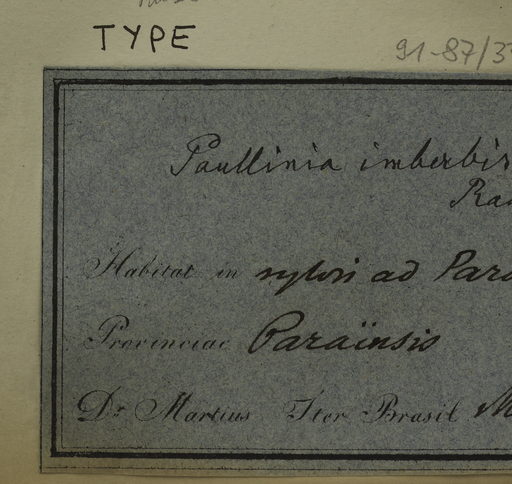 TYPE
91-87/3
Paullinia imberbis
Habitat in sylvis ad Para
Provinciae Paraënsis
Dr Martius Iter Brasil M